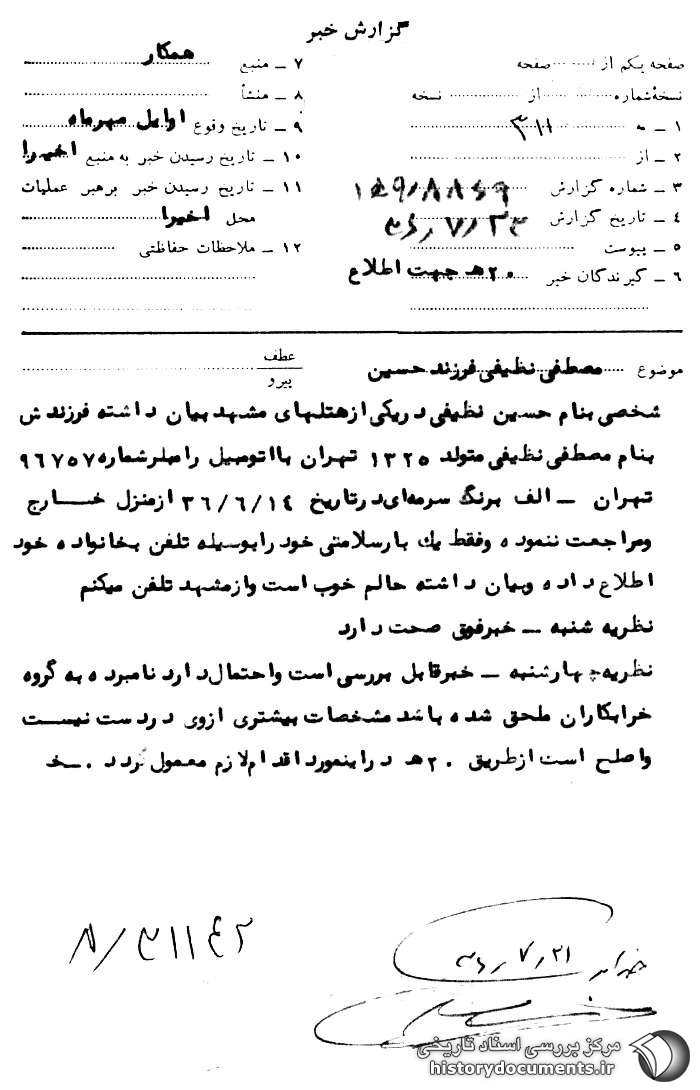 گزارش خبر
صفحه یکم از ........ صفحه
نسخهٔ شماره ........ از ........ نسخه
۱ – به ۳۱۱
۲ – از
۳ – شماره گزارش
۴ – تاریخ گزارش ۳۶٫۷٫۲۳
۵ – پیوست
۶ – گیرندگان خبر ۲۰ هـ جهت اطلاع
۷ – منبع همکار
۸ – منشأ
۹ – تاریخ وقوع اوایل مهرماه
۱۰ – تاریخ رسیدن خبر به منبع اخیرا
۱۱ – تاریخ رسیدن خبر برهبر عملیات
محل اخیرا
۱۲ – ملاحظات حفاظتی
موضوع مصطفی نظیفی فرزند حسین
عطف
پیرو
شخصی بنام حسین نظیفی در یکی از هتلهای مشهد بیان داشته فرزندش
بنام مصطفی نظیفی متولد ۱۳۲۵ تهران با اتومبیل رامبلر شماره ۹۶۷۵۷
تهران – الف برنگ سرمه‌ای در تاریخ ۳۶/۶/۱۴ از منزل خارج
ومراجعت ننموده وفقط یك بار سلامتی خود را بوسیله تلفن بخانواده خود
اطلاع داده وبیان داشته حالم خوب است واز مشهد تلفن میکنم
نظریه شنبه – خبر فوق صحت دارد
نظریه چهارشنبه – خبر قابل بررسی است واحتمال دارد نامبرده به گروه
خرابکاران ملحق شده باشد مشخصات بیشتری از وی در دست نیست
واصلح است از طریق ۲۰ هـ در اینمورد اقدام لازم معمول گردد . –خ
۸/۳۱۱۴۲
۳۶٫۷٫۲۱
مرکز بررسی اسناد تاریخی
historydocuments.ir